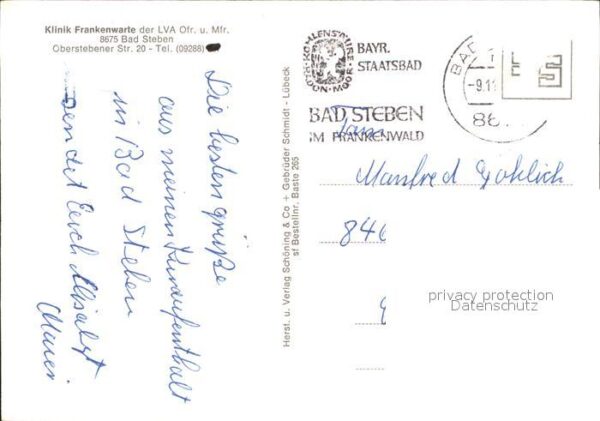 Klinik Frankenwarte der LVA Ofr. u. Mfr.
8675 Bad Steben
Oberstebener Str. 20 - Tel. (09288)
Die besten grüße
aus meinen Kuraufenthalt
in Bad Steben
sendet Euch
Herst. u. Verlag Schöning & Co + Gebrüder Schmidt - Lübeck
sf Bestellnr. Baste 265
BAYR.
STAATSBAD
BAD STEBEN
IM FRANKENWALD
BAD
-9.11
86
Fam.
Manfred
846
privacy protection
Datenschutz